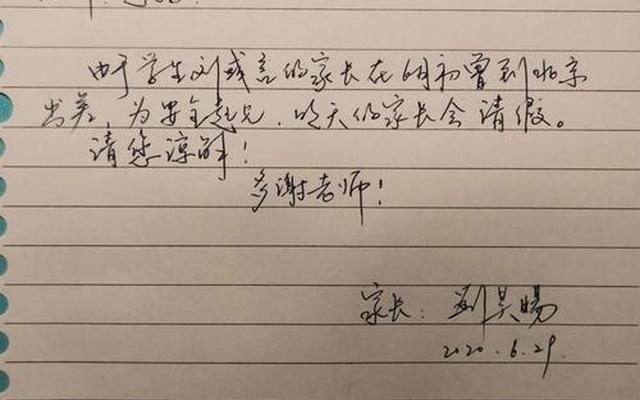 由于学生刘或言的家长在6月初曾到北京
出差，为安全起见，明天的家长会请假。
请您谅解！
多谢老师！
家长：刘昊暘
2020.6.29.